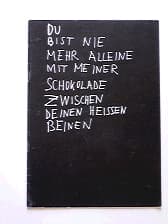 DU
BIST NIE
MEHR ALLEINE
MIT MEINER
SCHOKOLADE
ZWISCHEN
DEINEN HEISSEN
BEINEN